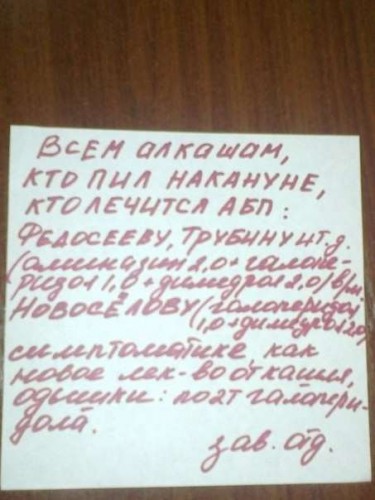 ВСЕМ АЛКАШАМ,
КТО ПИЛ НАКАНУНЕ,
КТО ЛЕЧИТСЯ АБП:
ФЕДОСЕЕВУ, ТРУБИНУ И Т.Д.
(аминазин 2,0 + галопе-
ридол 1,0 + димедрол 2,0) в/м.
НОВОСЁЛОВУ (галоперидол
1,0 + димедрол 2,0)
симптоматике, как
новое лек-во от кашля,
одышки: по 2т галопери-
дола.
зав. отд.